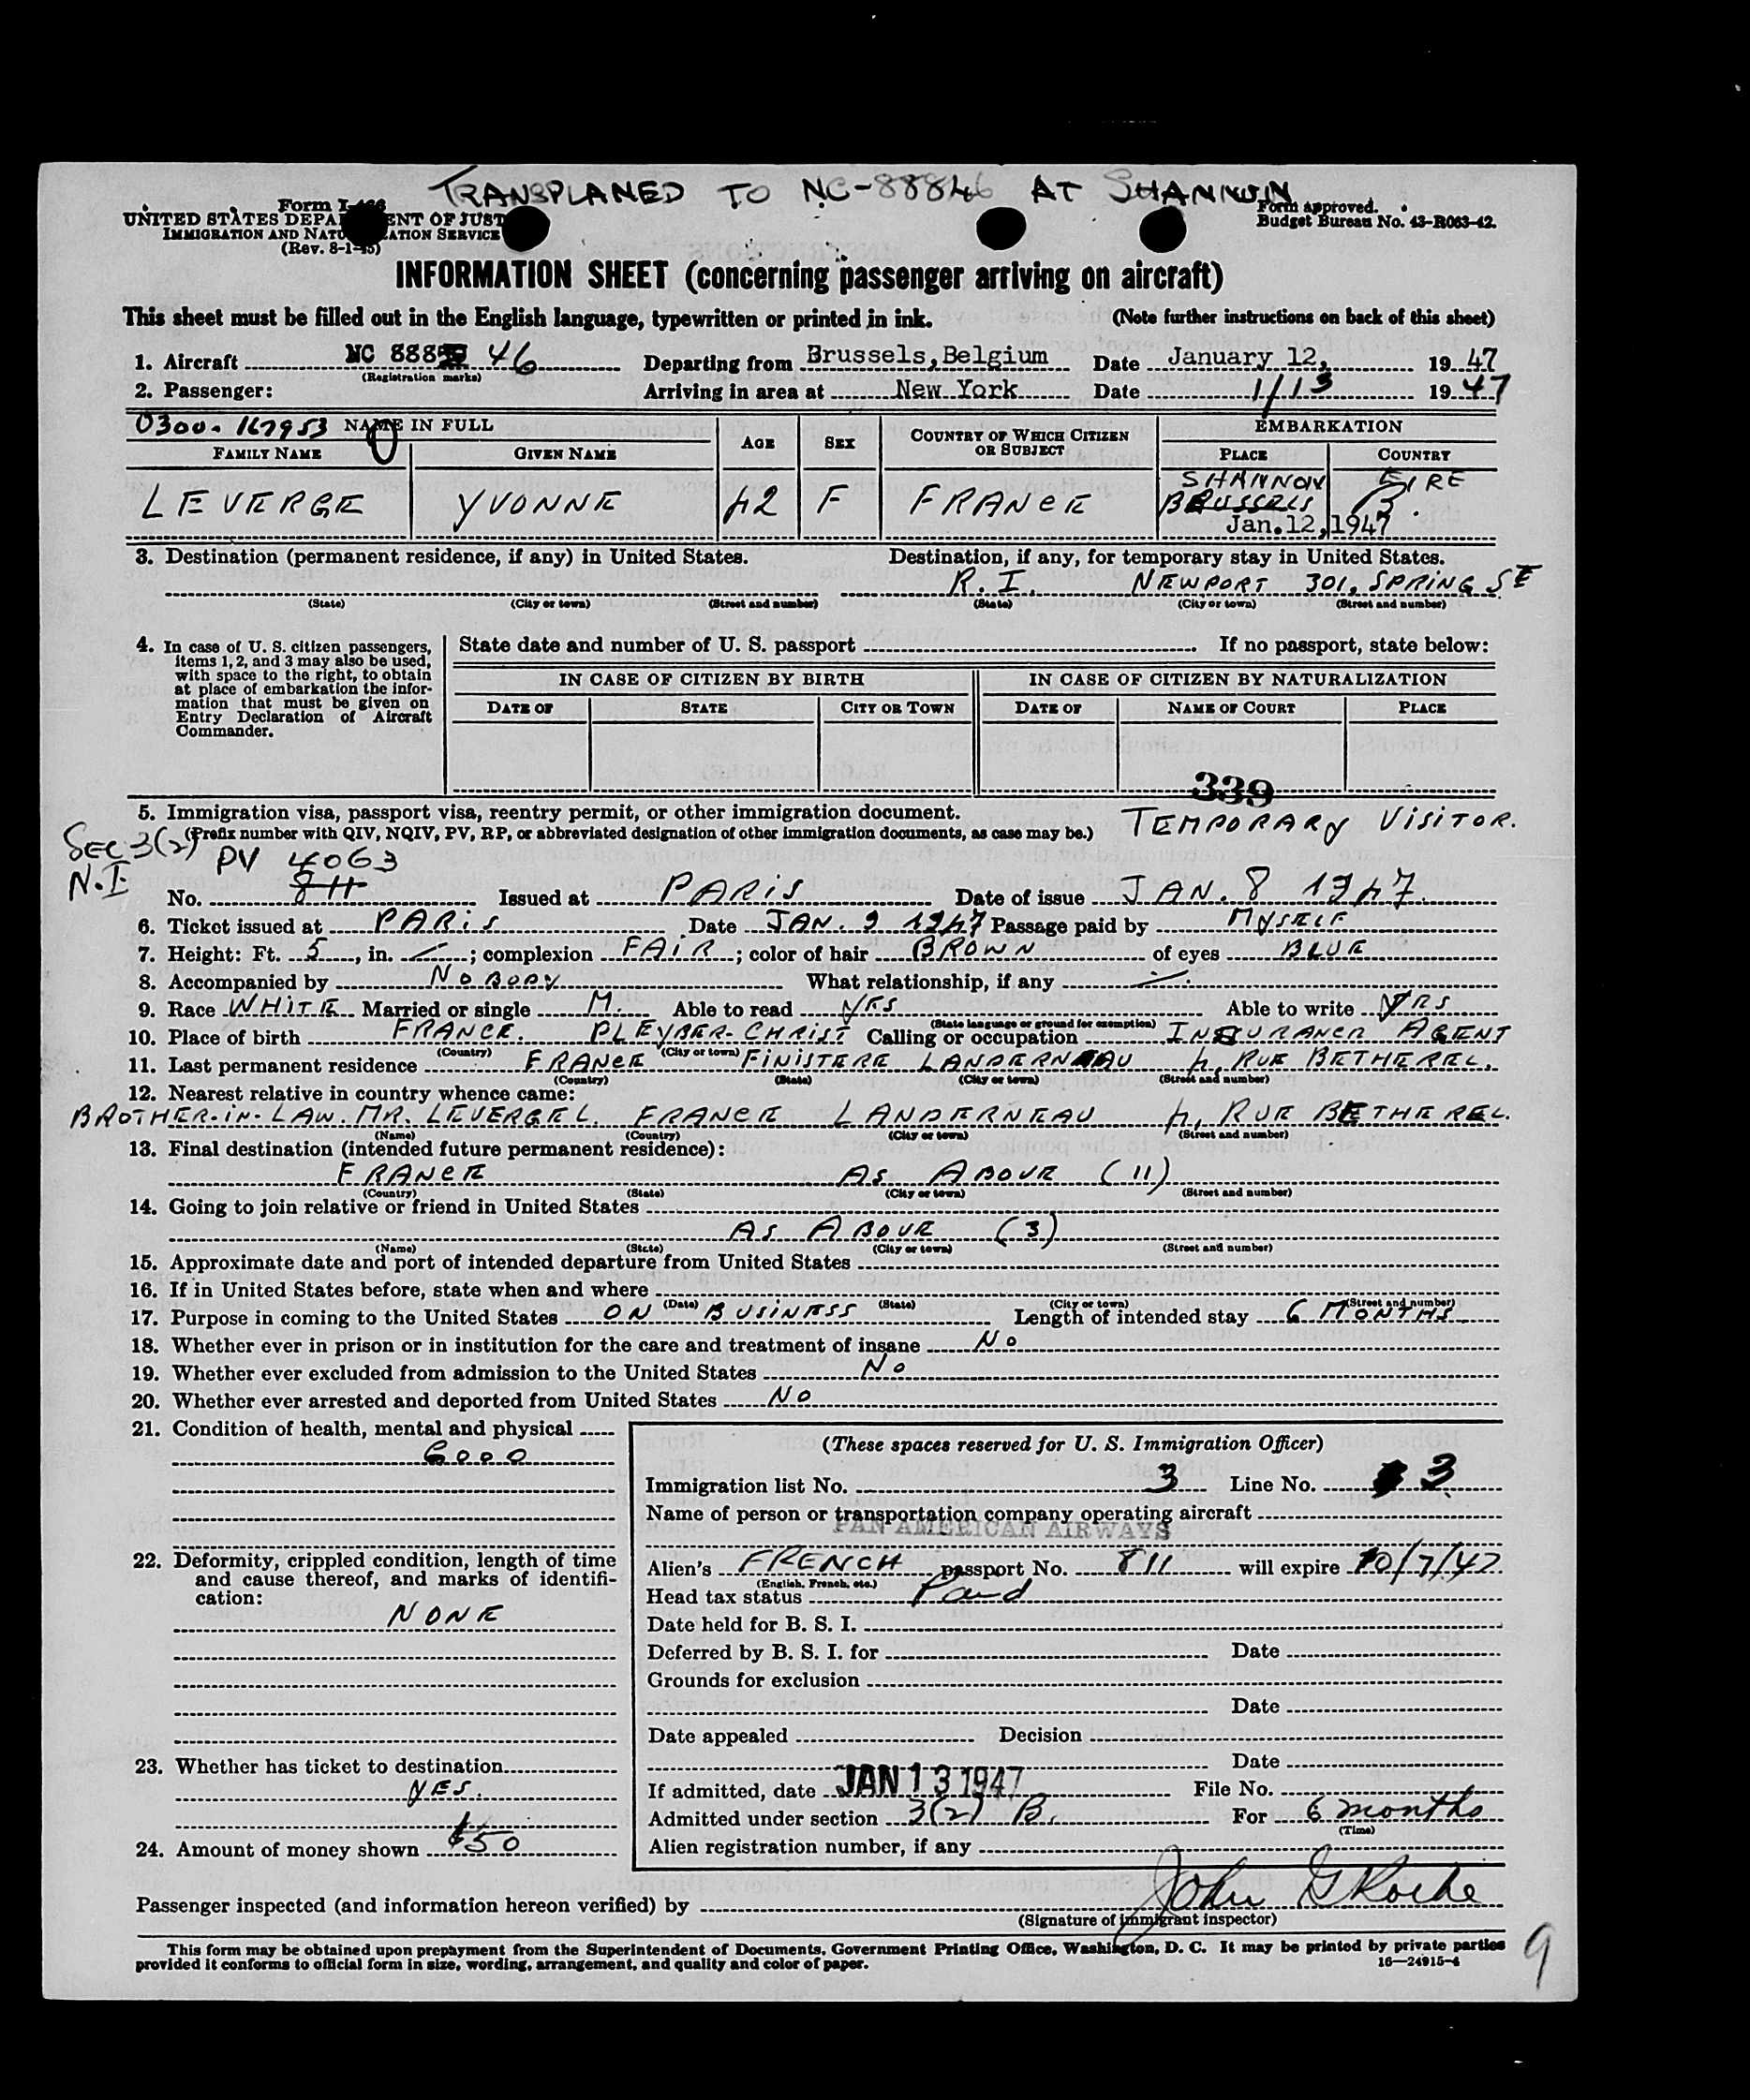 TRANSPLANED TO NC-88846 AT SHANNON
Form I-466
UNITED STATES DEPARTMENT OF JUSTICE
IMMIGRATION AND NATURALIZATION SERVICE
(Rev. 8-1-45)
Form approved.
Budget Bureau No. 43-R063-42.
INFORMATION SHEET (concerning passenger arriving on aircraft)
This sheet must be filled out in the English language, typewritten or printed in ink. (Note further instructions on back of this sheet)
1. Aircraft NC 888 46 Departing from Brussels, Belgium Date January 12, 1947
(Registration marks)
2. Passenger: Arriving in area at New York Date 1/13 1947
0300-167953 NAME IN FULL AGE SEX COUNTRY OF WHICH CITIZEN OR SUBJECT EMBARKATION
FAMILY NAME GIVEN NAME PLACE COUNTRY
SHANNON EIRE
LEVERGE YVONNE 42 F FRANCE BRUSSELS B.
Jan.12,1947
3. Destination (permanent residence, if any) in United States. Destination, if any, for temporary stay in United States.
R.I. NEWPORT 301, SPRING ST
(State) (City or town) (Street and number) (State) (City or town) (Street and number)
4. In case of U. S. citizen passengers, items 1, 2, and 3 may also be used, with space to the right, to obtain at place of embarkation the information that must be given on Entry Declaration of Aircraft Commander.
State date and number of U. S. passport If no passport, state below:
IN CASE OF CITIZEN BY BIRTH IN CASE OF CITIZEN BY NATURALIZATION
DATE OF STATE CITY OR TOWN DATE OF NAME OF COURT PLACE
339
5. Immigration visa, passport visa, reentry permit, or other immigration document.
(Prefix number with QIV, NQIV, PV, RP, or abbreviated designation of other immigration documents, as case may be.) TEMPORARY VISITOR.
SEC 3(2) PV 4063
N.I.
No. 811 Issued at PARIS Date of issue JAN. 8 1947
6. Ticket issued at PARIS Date JAN. 9 1947 Passage paid by MYSELF
7. Height: Ft. 5, in. –; complexion FAIR; color of hair BROWN of eyes BLUE
8. Accompanied by NOBODY What relationship, if any –.
9. Race WHITE Married or single M. Able to read YES Able to write YES
(State language or ground for exemption)
10. Place of birth FRANCE. PLEYBER-CHRIST Calling or occupation INSURANCE AGENT
(Country) (City or town)
11. Last permanent residence FRANCE FINISTERE LANDERNEAU 4, RUE BETHEREL.
(Country) (State) (City or town) (Street and number)
12. Nearest relative in country whence came:
BROTHER-IN-LAW. MR. LEVERGE L. FRANCE LANDERNEAU 4, RUE BETHEREL.
(Name) (Country) (City or town) (Street and number)
13. Final destination (intended future permanent residence):
FRANCE AS ABOVE (11)
(Country) (State) (City or town) (Street and number)
14. Going to join relative or friend in United States
AS ABOVE (3)
(Name) (State) (City or town) (Street and number)
15. Approximate date and port of intended departure from United States
16. If in United States before, state when and where
(Date) (State) (City or town) (Street and number)
17. Purpose in coming to the United States ON BUSINESS Length of intended stay 6 MONTHS
18. Whether ever in prison or in institution for the care and treatment of insane NO
19. Whether ever excluded from admission to the United States NO
20. Whether ever arrested and deported from United States NO
21. Condition of health, mental and physical
GOOD
22. Deformity, crippled condition, length of time and cause thereof, and marks of identification:
NONE
23. Whether has ticket to destination
YES.
24. Amount of money shown $50
(These spaces reserved for U. S. Immigration Officer)
Immigration list No. 3 Line No. 3
Name of person or transportation company operating aircraft
PAN AMERICAN AIRWAYS
Alien's FRENCH passport No. 811 will expire 10/7/47
(English, French, etc.)
Head tax status Paid
Date held for B. S. I.
Deferred by B. S. I. for Date
Grounds for exclusion
Date
Date appealed Decision
Date
If admitted, date JAN 13 1947 File No.
Admitted under section 3(2) B. For 6 months
(Time)
Alien registration number, if any
Passenger inspected (and information hereon verified) by John G Roche
(Signature of immigrant inspector)
This form may be obtained upon prepayment from the Superintendent of Documents, Government Printing Office, Washington, D. C. It may be printed by private parties
provided it conforms to official form in size, wording, arrangement, and quality and color of paper. 16—24915-4
9